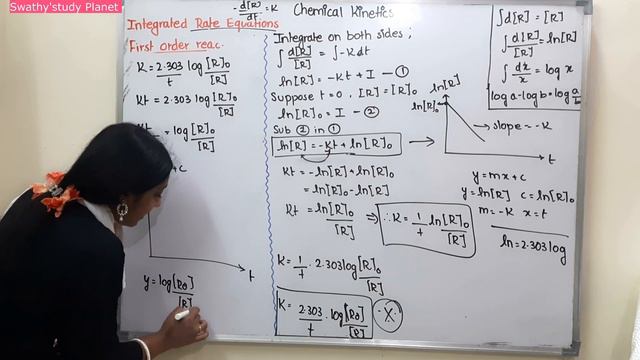 Swathy'study Planet
-d[R]/dt = K
Chemical Kinetics
Integrated Rate Equations
First order reac.
K = 2.303/t log [R]₀/[R]
Kt = 2.303 log [R]₀/[R]
Kt = log [R]₀/[R]
+c
t
y = log [R₀]/[R]
Integrate on both sides;
∫ d[R]/[R] = ∫ -Kdt
ln[R] = -Kt + I - ①
Suppose t = 0, [R] = [R]₀
ln[R]₀ = I - ②
Sub ② in ①
ln[R] = -Kt + ln[R]₀
Kt = -ln[R] + ln[R]₀
= ln[R]₀ - ln[R]
Kt = ln [R]₀/[R] ⇒ ∴K = 1/t ln [R]₀/[R]
K = 1/t · 2.303 log [R]₀/[R]
K = 2.303/t · log [R₀]/[R] X
ln[R]
ln[R]₀
slope = -K
t
y = mx + c
y = ln[R] c = ln[R]₀
m = -K x = t
ln = 2.303 log
∫d[R] = [R]
∫ d[R]/[R] = ln[R]
∫ dx/x = log x
log a - log b = log a/b